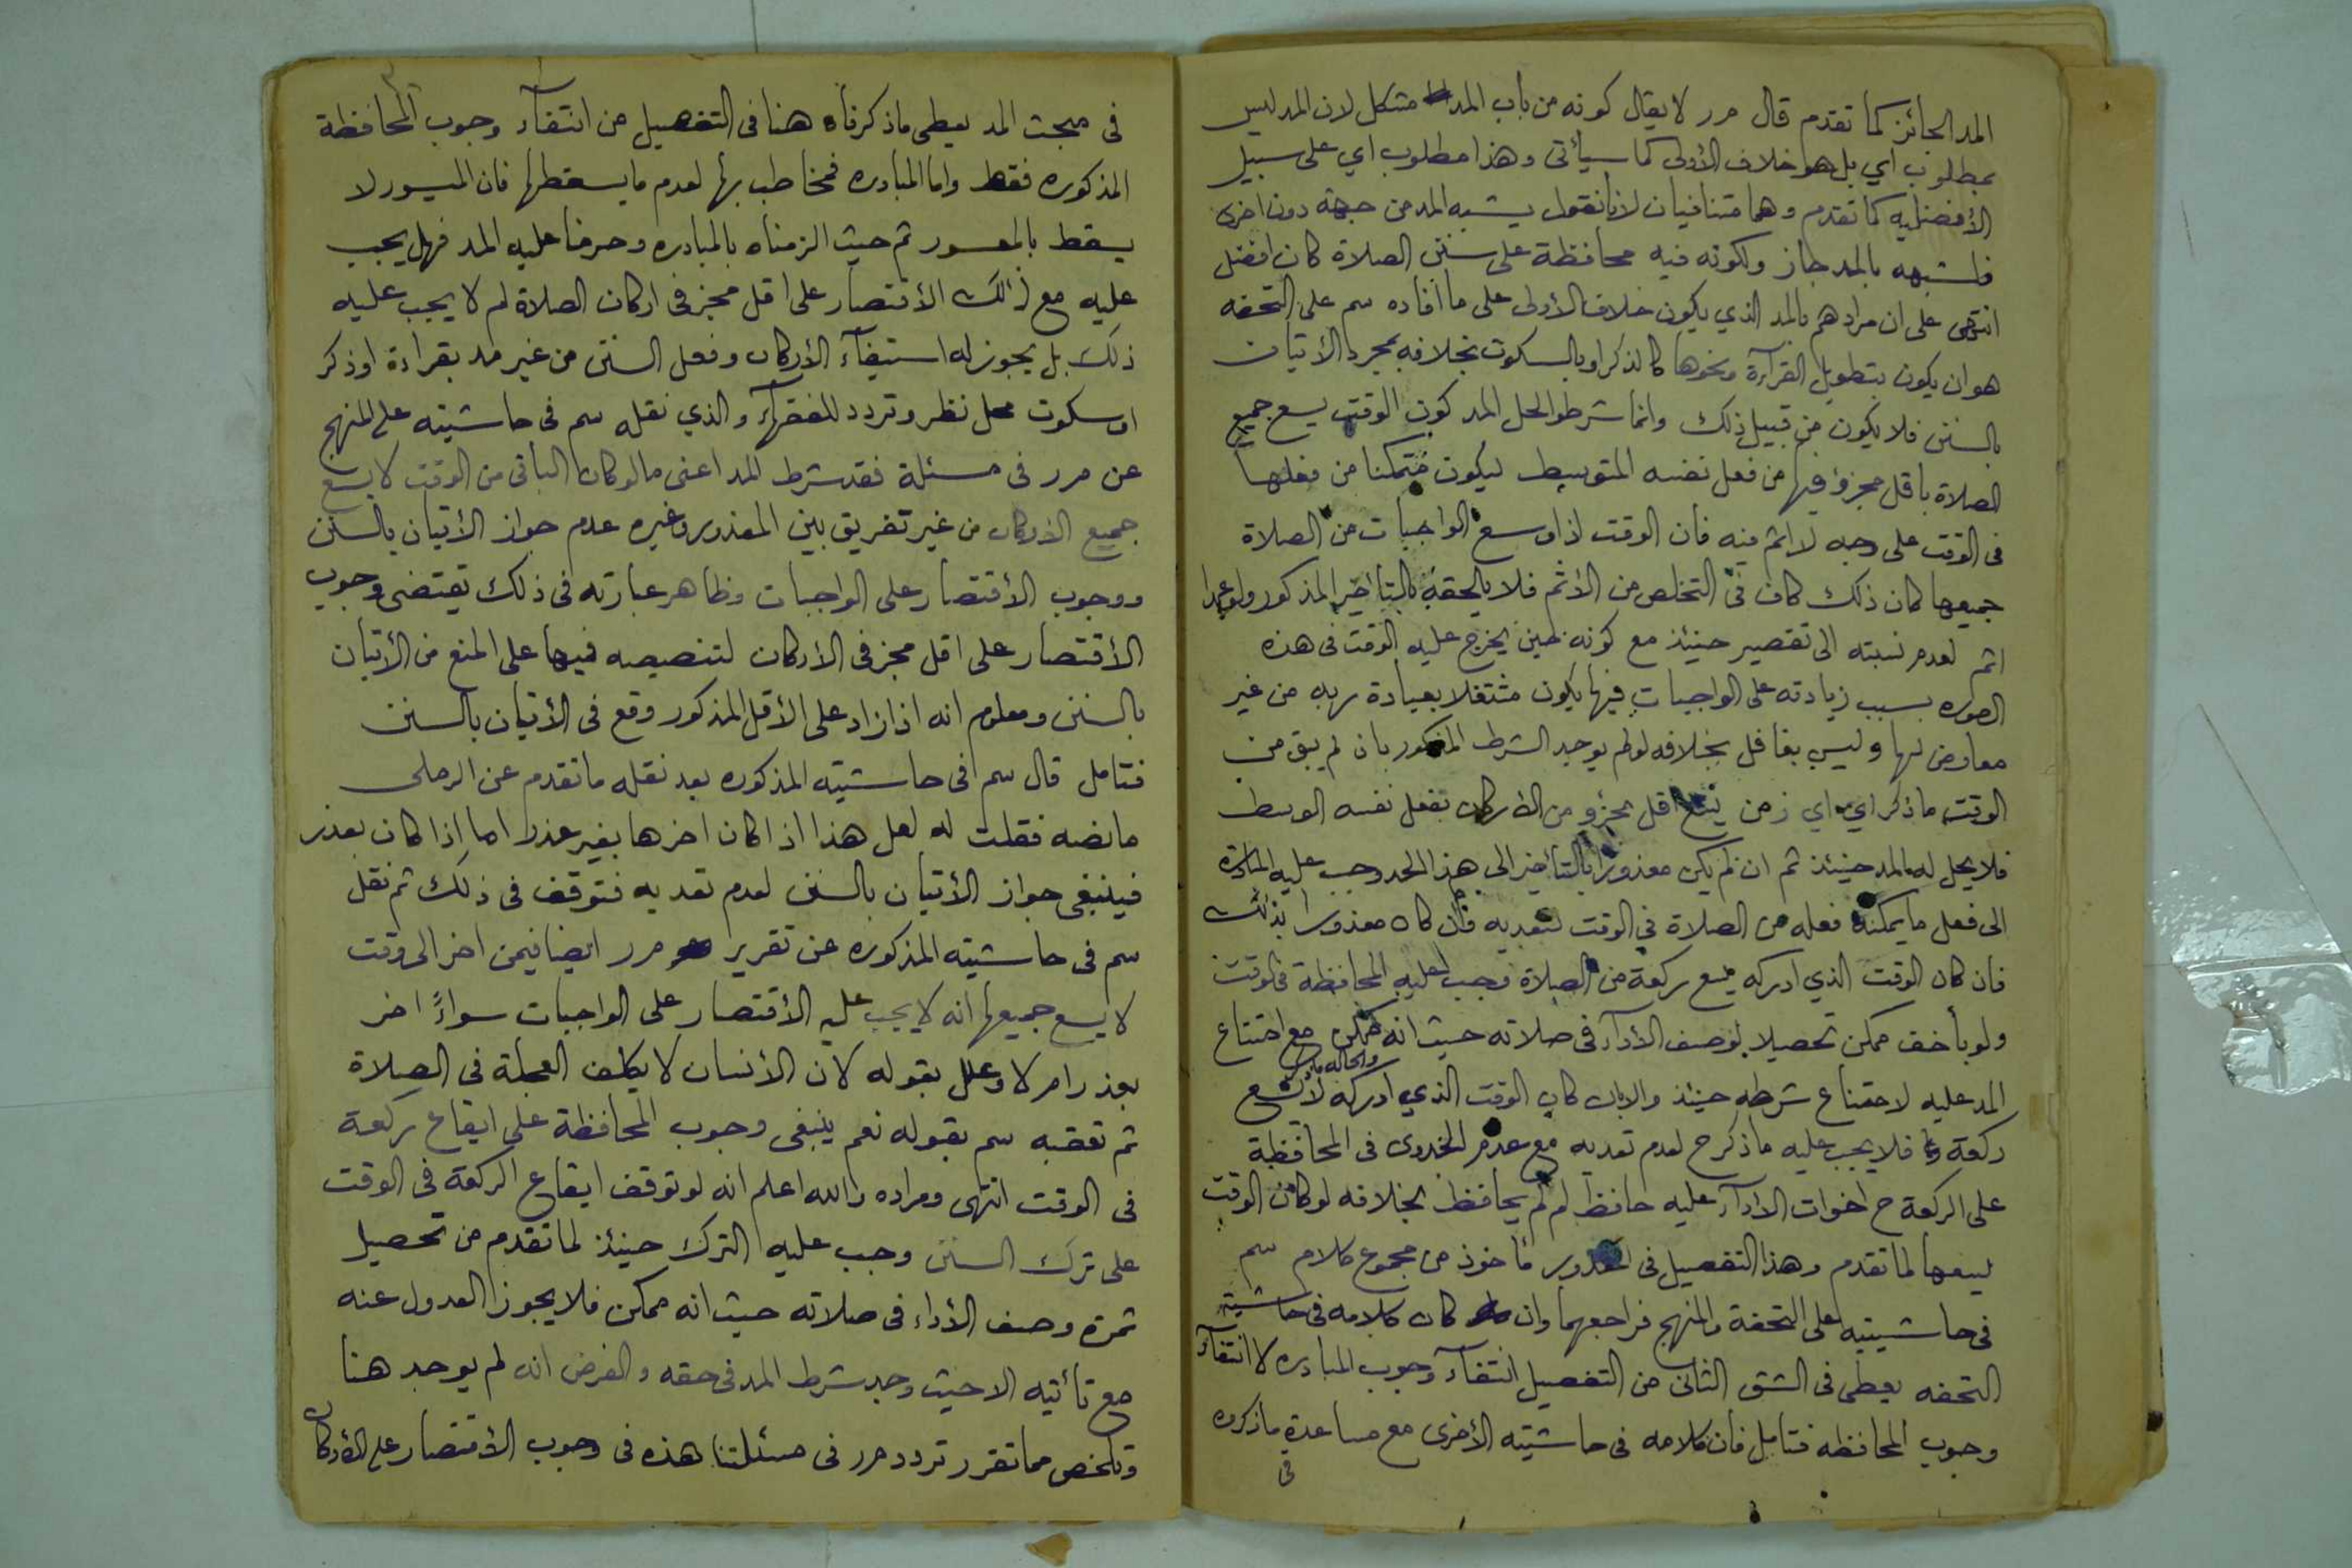 المد الجائز كما تقدم قال م ر لا يقال كونه من باب المد مشكل لان المد ليس
بمطلوب اي بل هو خلاف الأولى كما سيأتى وهذا مطلوب اي على سبيل
الأفضليه كما تقدم وهما متنافيان لأنا نقول يشبه المد من جهة دون اخرى
فلشبهه بالمد جاز ولكونه فيه محافظة على سنن الصلاة كان افضل
انتهى على ان مرادهم بالمد الذي يكون خلاف الأولى على ما أفاده سم على التحفه
هو ان يكون بتطويل القرآءة ونحوها كالذكر او بالسكوت بخلافه بمجرد الأتيان
بالسنن فلا يكون من قبيل ذلك وانما شرطوا لحل المد كون الوقت يسع جميع
الصلاة باقل مجزؤ فيها من فعل نفسه المتوسط ليكون متمكنا من فعلها
فى الوقت على وجه لا اثم فيه فان الوقت اذا وسع الواجبات من الصلاة
جميعها كان ذلك كاف فى التخلص من الأثم فلا يلحقه بالتاخير المذكور ولو عمدا
اثم لعدم نسبته الى تقصير حينئذ مع كونه حين يخرج عليه الوقت فى هذه
الصوره بسبب زيادته على الواجبات فيها يكون مشتغلا بعبادة ربه من غير
معارض لها وليس بغافل بخلافه لو لم يوجد الشرط المذكور بان لم يبق من
الوقت ما ذكر اي اي زمن يسع اقل مجزؤ من الأركان بفعل نفسه الوسط
فلا يحل له المد حينئذ ثم ان لم يكن معذورا بالتأخير الى هذا الحد وجب عليه المبادرة
الى فعل ما يمكنه فعله من الصلاة فى الوقت لتعديه فان كان معذورا بذلك
فان كان الوقت الذي ادركه يسع ركعة من الصلاة وجب عليه المحافظة فى الوقت
ولو بأخف ممكن تحصيلا لوصف الأدآء فى صلاته حيث انه ممكن مع امتناع
المد عليه لامتناع شرطه حينئذ والا بان كان الوقت الذي ادركه والحاله ما ذكر لا يسع
ركعة فلا يجب عليه ما ذكر ح لعدم تعديه مع عدم الجدوى فى المحافظة
على الركعة ح لفوات الأدآء عليه حافظ ام لم يحافظ بخلافه لو كان الوقت
يسعها لما تقدم وهذا التفصيل فى المعذور مأخوذ من مجموع كلام سم
فى حاشيتيه على التحفة والمنهج فراجعهما وان كان كلامه فى حاشية
التحفه يعطى فى الشق الثانى من التفصيل انتفآء وجوب المبادره لا انتفآء
وجوب المحافظه فتامل فان كلامه فى حاشيته الأخرى مع مساعدة ما ذكره
فى
فى مبحث المد يعطى ما ذكرناه هنا فى التفصيل من انتفآء وجوب المحافظة
المذكوره فقط واما المبادره فمخاطب بها لعدم ما يسقطها فان الميسور لا
يسقط بالمعسور ثم حيث الزمناه بالمبادره وحرمنا عليه المد فهل يجب
عليه مع ذلك الأقتصار على اقل مجز فى اركان الصلاة ام لا يجب عليه
ذلك بل يجوز له استيفآء الأركان وفعل السنن من غير مد بقراءة او ذكر
او سكوت محل نظر وتردد للفقهآء والذي نقله سم فى حاشيته على المنهج
عن م ر فى مسئلة فقد شرط المد اعنى ما لو كان الباقى من الوقت لا يسع
جميع الأركان من غير تفريق بين المعذور وغيره عدم جواز الأتيان بالسنن
ووجوب الأقتصار على الواجبات وظاهر عبارته فى ذلك يقتضى وجوب
الأقتصار على اقل مجز فى الأركان لتنصيصه فيها على المنع من الأتيان
بالسنن ومعلوم انه اذا زاد على الأقل المذكور وقع فى الأتيان بالسنن
فتامل قال سم فى حاشيته المذكوره بعد نقله ما تقدم عن الرملى
ما نصه فقلت له لعل هذا اذا كان اخرها بغير عذر اما اذا كان بعذر
فينبغى جواز الأتيان بالسنن لعدم تعديه فتوقف فى ذلك ثم نقل
سم فى حاشيته المذكوره عن تقرير م ر ايضا فيمن اخر الى وقت
لا يسع جميعها انه لا يجب عليه الأقتصار على الواجبات سواءً اخر
بعذر ام لا وعلل بقوله لان الأنسان لا يكلف العجلة فى الصلاة
ثم تعقبه سم بقوله نعم ينبغى وجوب المحافظة على ايقاع ركعة
فى الوقت انتهى ومراده والله اعلم انه لو توقف ايقاع الركعة فى الوقت
على ترك السنن وجب عليه الترك حينئذ لما تقدم من تحصيل
ثمرة وصف الأداء فى صلاته حيث انه ممكن فلا يجوز العدول عنه
مع تأتيه الا حيث وجد شرط المد فى حقه والفرض انه لم يوجد هنا
وتلخص مما تقرر تردد م ر فى مسئلتنا هذه فى وجوب الأقتصار على الأركان